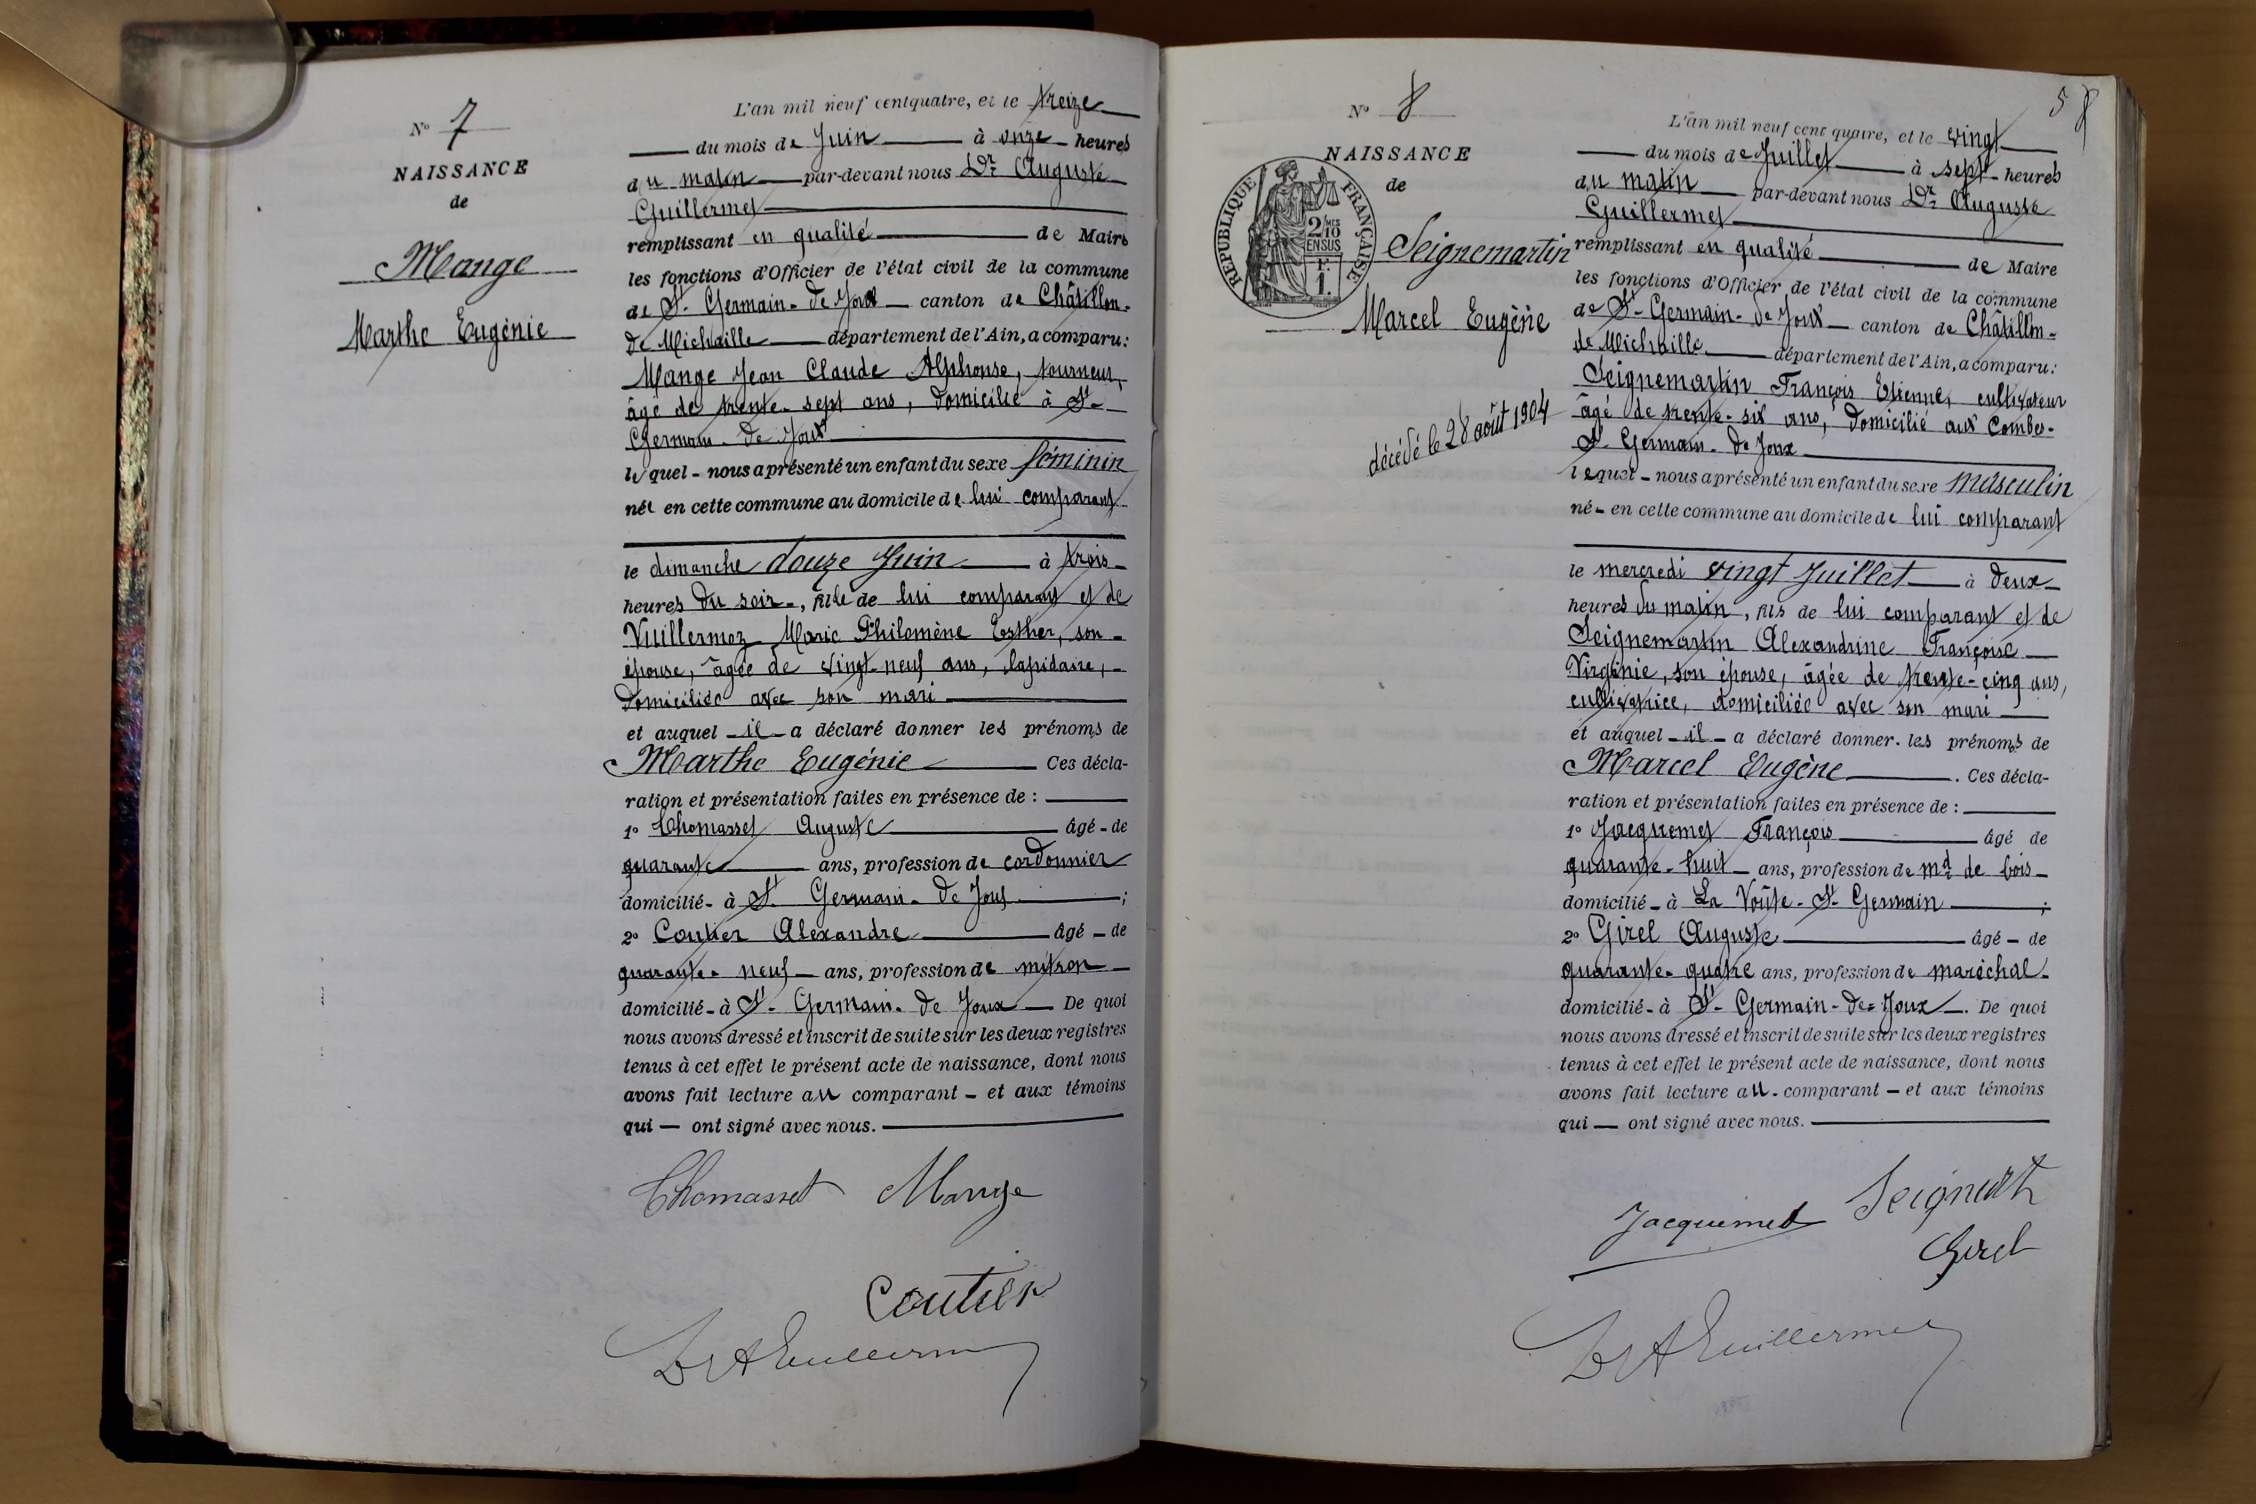 N° 7
NAISSANCE
de
Mange
Marthe Eugénie
L'an mil neuf cent quatre, et le treize
du mois de Juin à onze heures
du matin par-devant nous Dr Auguste
Guillermet
remplissant en qualité de Maire
les fonctions d'Officier de l'état civil de la commune
de St-Germain-de Joux canton de Châtillon-
de Michaille département de l'Ain, a comparu:
Mange Jean Claude Alphonse, tourneur,
âgé de trente-sept ans, domicilié à St-
Germain-de Joux
lequel - nous a présenté un enfant du sexe féminin
née en cette commune au domicile de lui comparant
le dimanche douze Juin à trois
heures du soir, fille de lui comparant et de
Vuillermoz Marie Philomène Esther, son
épouse, âgée de vingt-neuf ans, lapidaire,
domiciliée avec son mari
et auquel - il - a déclaré donner les prénoms de
Marthe Eugénie Ces décla-
ration et présentation faites en présence de :
1° Chomasset Auguste âgé - de
quarante ans, profession de cordonnier
domicilié - à St Germain-de Joux ;
2° Coutier Alexandre âgé - de
quarante-neuf ans, profession de mitron
domicilié - à St-Germain-de Joux De quoi
nous avons dressé et inscrit de suite sur les deux registres
tenus à cet effet le présent acte de naissance, dont nous
avons fait lecture au comparant - et aux témoins
qui - ont signé avec nous.
Chomasset Mange
Coutier
Dr A Guillermet
5 8
N° 8
NAISSANCE
de
RÉPUBLIQUE FRANÇAISE
2/10 EN SUS
F. 1.
Seignemartin
Marcel Eugène
décédé le 28 août 1904
L'an mil neuf cent quatre, et le vingt
du mois de Juillet à sept heures
du matin par-devant nous Dr Auguste
Guillermet
remplissant en qualité de Maire
les fonctions d'Officier de l'état civil de la commune
de St-Germain-de Joux canton de Châtillon-
de Michaille département de l'Ain, a comparu:
Seignemartin François Etienne, cultivateur
âgé de trente-six ans, domicilié aux Combes-
St-Germain-de Joux
lequel - nous a présenté un enfant du sexe masculin
né - en cette commune au domicile de lui comparant
le mercredi vingt Juillet à deux
heures du matin, fils de lui comparant et de
Seignemartin Alexandrine Françoise
Virginie, son épouse, âgée de trente-cinq ans,
cultivatrice, domiciliée avec son mari
et auquel - il - a déclaré donner les prénoms de
Marcel Eugène . Ces décla-
ration et présentation faites en présence de :
1° Jacquemet François âgé de
quarante-huit ans, profession de md de bois
domicilié - à La Voûte-St-Germain ;
2° Girel Auguste âgé - de
quarante-quatre ans, profession de maréchal
domicilié - à St-Germain-de-Joux . De quoi
nous avons dressé et inscrit de suite sur les deux registres
tenus à cet effet le présent acte de naissance, dont nous
avons fait lecture au comparant - et aux témoins
qui - ont signé avec nous.
Jacquemet
Girel
Dr A Guillermet